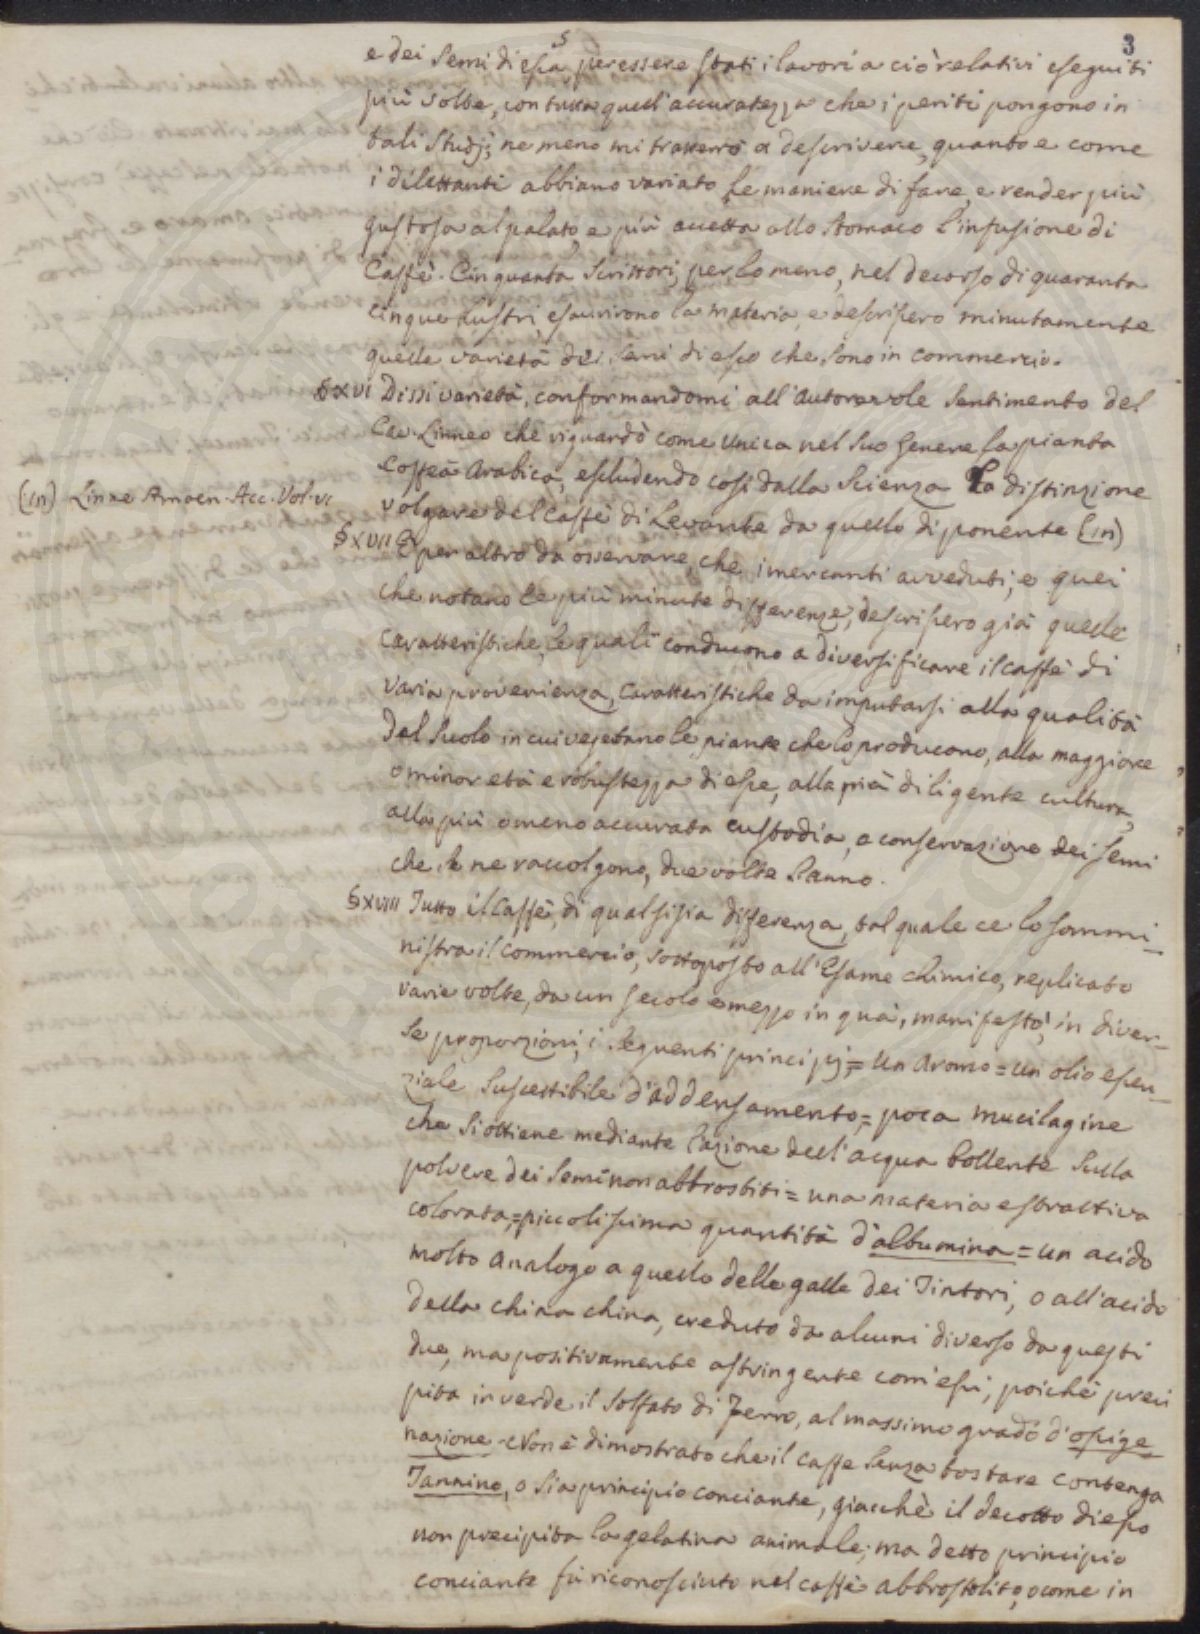 3
5
e dei Semi di essa per essere stati i lavori a ciò relativi eseguiti
più volte, con tutta quell'accuratezza che i periti pongono in
tali Studj; ne meno mi tratterrò a descrivere, quanto e come
i dilettanti abbiano variato le maniere di fare, e render più
gustosa al palato, e più accetta allo Stomaco l'infusione di
Caffè. Cinquanta Scrittori, per lo meno, nel decorso di quaranta
cinque Lustri, esaurirono la materia, e descrissero minutamente
quelle varietà dei Semi di esso che sono in commercio.
§ XVI Dissi varietà, conformandomi all'Autorevole Sentimento del
Cav. Linneo che riguardò come Unica nel suo Genere la pianta
Coffea Arabica, escludendo così dalla Scienza la distinzione
(m) Linne Amaen. Acc. Vol. VI
volgare del Caffè di Levante da quello di ponente (m)
§ XVII È per altro da osservare, che i mercanti avveduti, e quei
che notano le più minute differenze, descrissero già quelle
Caratteristiche, le quali conducono a diversificare il caffè di
Varia provenienza, Caratteristiche da imputarsi alla qualità
del Suolo in cui vegetano le piante che lo producono, alla maggiore
o minor età e robustezza di esse, alla più diligente cultura,
alla più o meno accurata custodia, e conservazione dei semi
che se ne raccolgono, due volte l'anno.
§ XVIII Tutto il Caffè, di qualsisia differenza, tal quale ce lo sommi-
nistra il Commercio, Sottoposto all'Esame chimico, replicato
varie volte, da un secolo e mezzo in quà, manifestò, in diver-
se proporzioni, i Seguenti principj = Un Aromo = un olio essen-
ziale Suscettibile d'addensamento, = poca mucilagine
che si ottiene mediante l'azione dell'acqua bollente Sulla
polvere dei Semi non abbrostiti = una materia estrattiva
colorata, = piccolissima quantità d'albumina = un acido
molto Analogo a quello delle galle dei Tintori, o all'acido
della china china, creduto da alcuni diverso da questi
due, ma positivamente astringente com'essi, poichè preci
pita in verde il Solfato di Ferro, al massimo grado d'ossige
nazione. Non è dimostrato che il caffè senza tostare contenga
Tannino, o sia principio conciante, giacchè il decotto di esso
non precipita la gelatina animale; ma detto principio
conciante fù riconosciuto nel caffè abbrostolito, come in